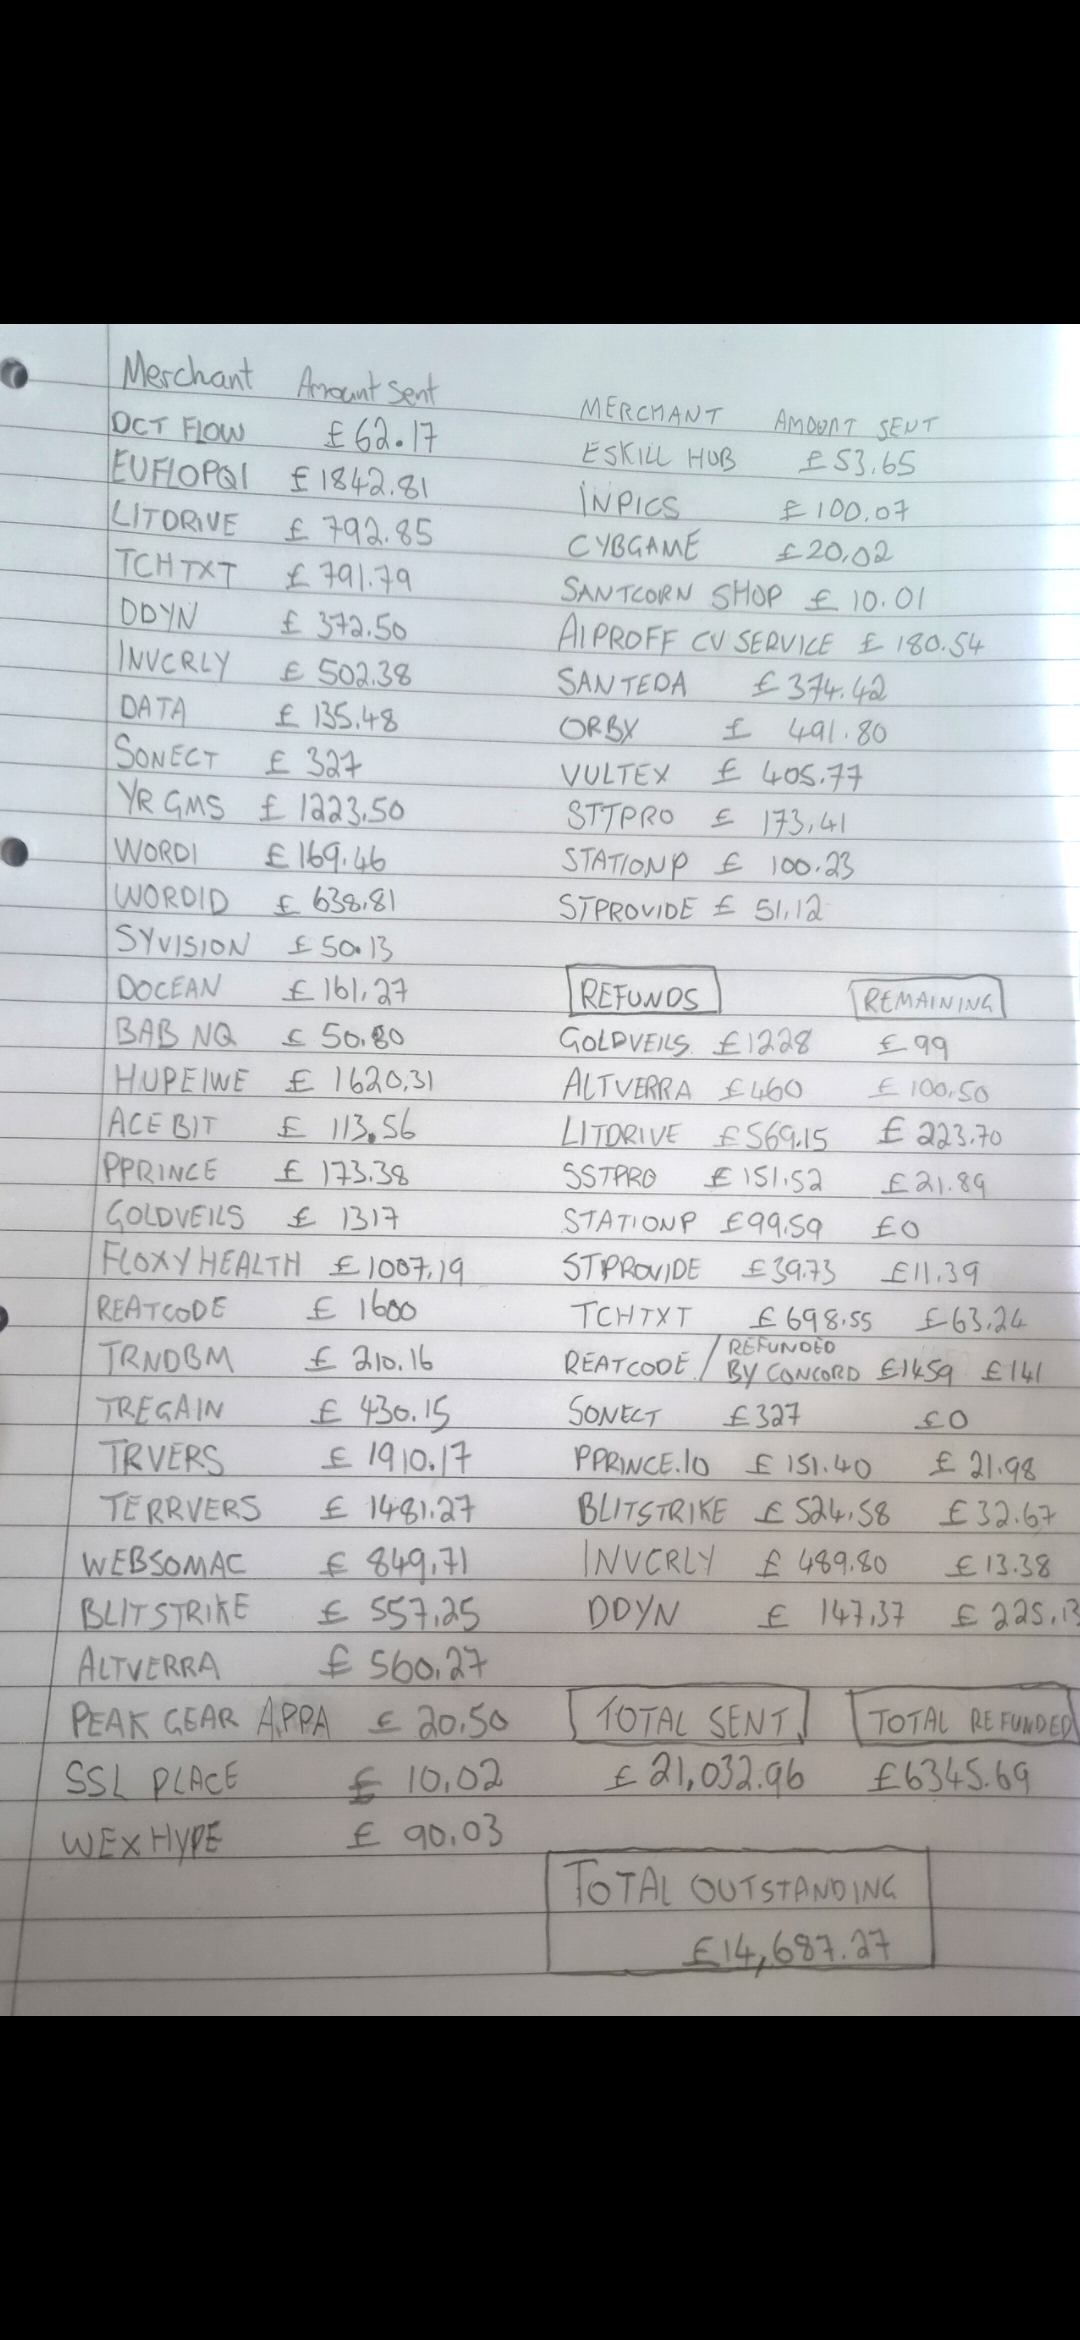 Merchant Amount Sent
DCT FLOW £62.17
EUFLOPQI £1842.81
LITDRIVE £792.85
TCHTXT £791.79
DDYN £372.50
INVCRLY £502.38
DATA £135.48
SONECT £327
YR GMS £1223.50
WORDI £169.46
WORDID £638.81
SYVISION £50.13
DOCEAN £161.27
BAB NQ £50.80
HUPEIWE £1620.31
ACE BIT £113.56
PPRINCE £173.38
GOLDVEILS £1317
FLOXYHEALTH £1007.19
REATCODE £1600
TRNDBM £210.16
TREGAIN £430.15
TRVERS £1910.17
TERRVERS £1481.27
WEBSOMAC £849.71
BLITSTRIKE £557.25
ALTVERRA £560.27
PEAK GEAR APPA £20.50
SSL PLACE £10.02
WEXHYPE £90.03
MERCHANT AMOUNT SENT
ESKILL HUB £53.65
INPICS £100.07
CYBGAME £20.02
SANTCORN SHOP £10.01
AIPROFF CV SERVICE £180.54
SANTEDA £374.42
ORBX £491.80
VULTEX £405.77
STTPRO £173.41
STATIONP £100.23
STPROVIDE £51.12
REFUNDS REMAINING
GOLDVEILS £1228 £99
ALTVERRA £460 £100.50
LITDRIVE £569.15 £223.70
SSTPRO £151.52 £21.89
STATIONP £99.59 £0
STPROVIDE £39.73 £11.39
TCHTXT £698.55 £63.24
REATCODE / REFUNDED
BY CONCORD £1459 £141
SONECT £327 £0
PPRINCE.IO £151.40 £21.98
BLITSTRIKE £524.58 £32.67
INVCRLY £489.80 £13.38
DDYN £147.37 £225.13
TOTAL SENT TOTAL REFUNDED
£21,032.96 £6345.69
TOTAL OUTSTANDING
£14,687.27